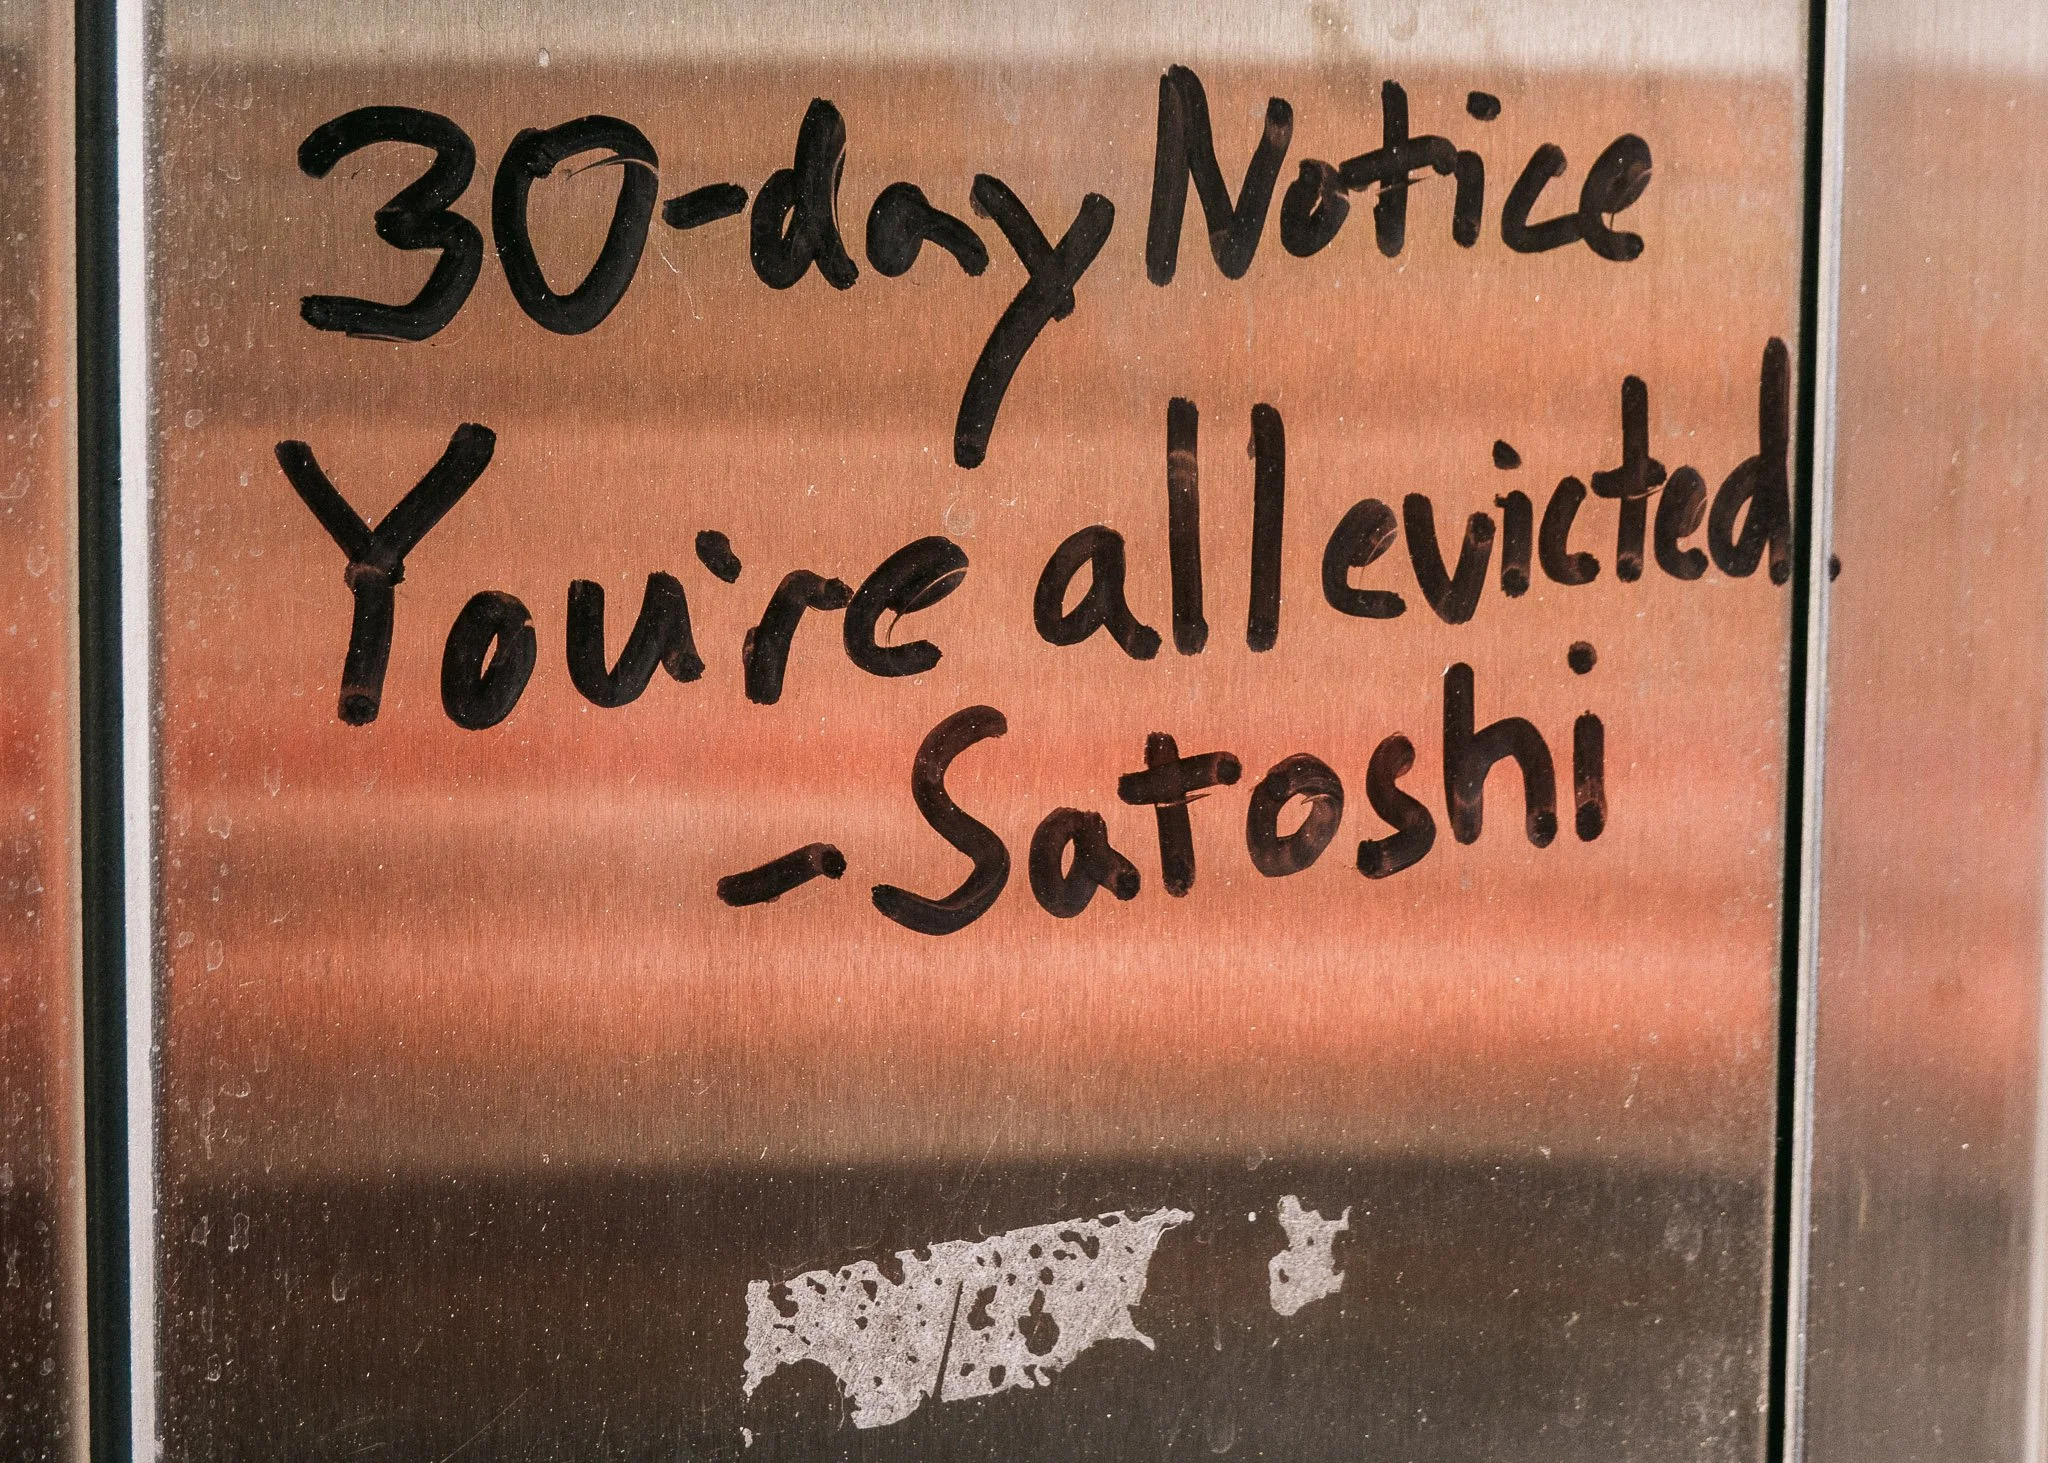 30-day Notice
You're all evicted.
-Satoshi